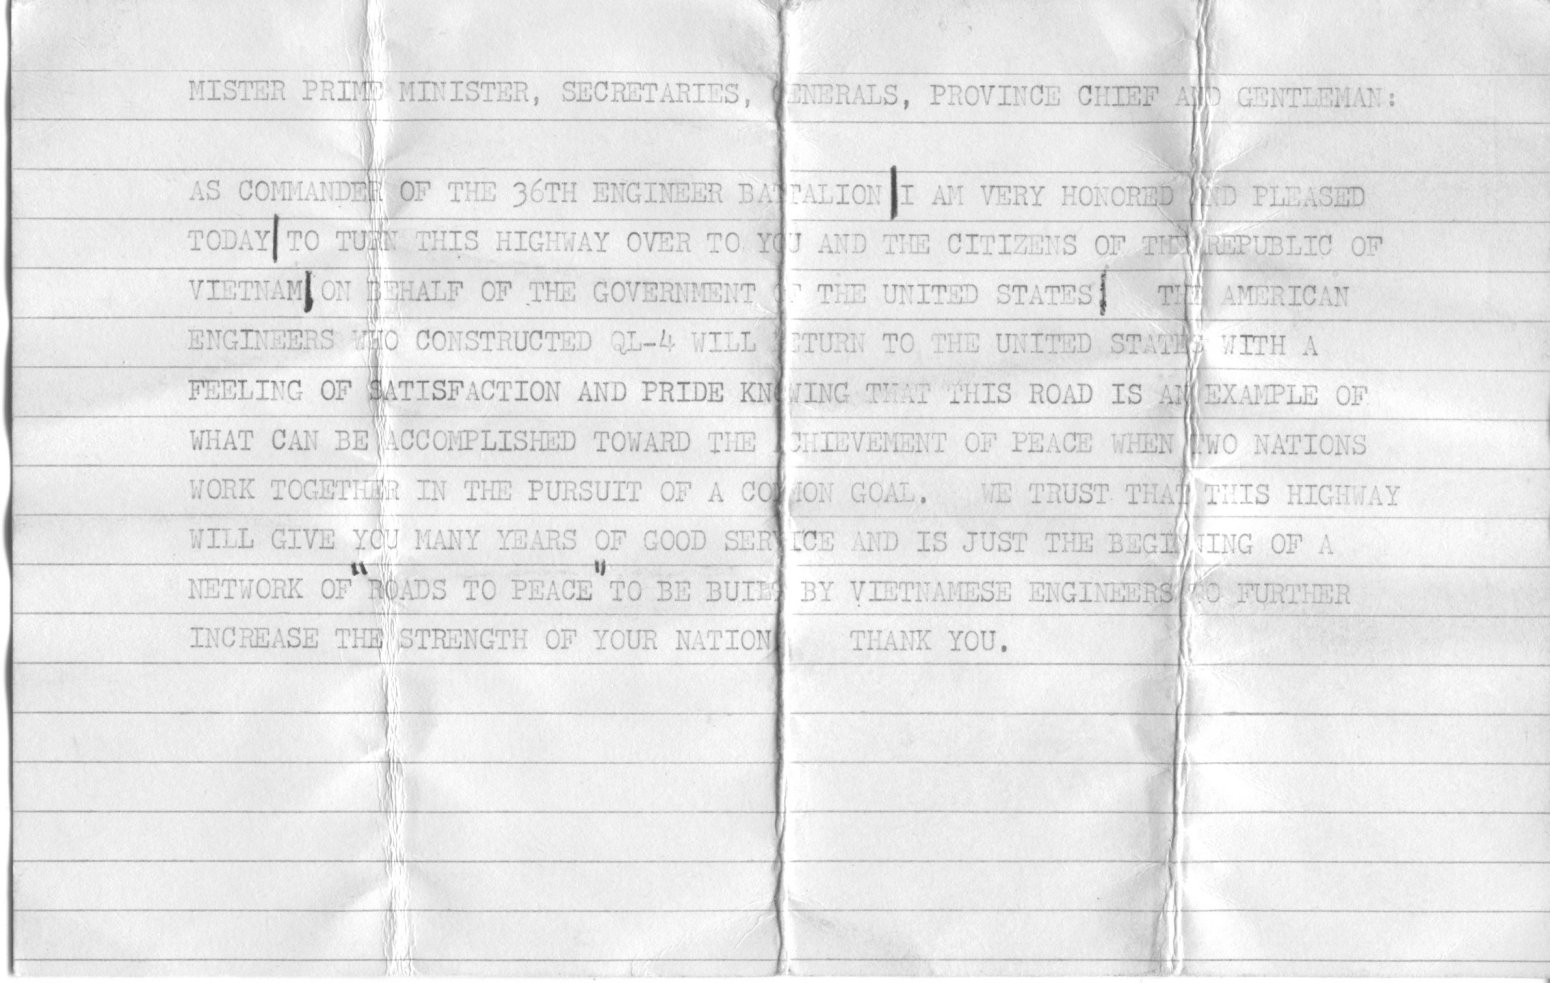 MISTER PRIME MINISTER, SECRETARIES, GENERALS, PROVINCE CHIEF AND GENTLEMAN:
AS COMMANDER OF THE 36TH ENGINEER BATTALION | I AM VERY HONORED AND PLEASED
TODAY | TO TURN THIS HIGHWAY OVER TO YOU AND THE CITIZENS OF THE REPUBLIC OF
VIETNAM | ON BEHALF OF THE GOVERNMENT OF THE UNITED STATES | THE AMERICAN
ENGINEERS WHO CONSTRUCTED QL-4 WILL RETURN TO THE UNITED STATES WITH A
FEELING OF SATISFACTION AND PRIDE KNOWING THAT THIS ROAD IS AN EXAMPLE OF
WHAT CAN BE ACCOMPLISHED TOWARD THE ACHIEVEMENT OF PEACE WHEN TWO NATIONS
WORK TOGETHER IN THE PURSUIT OF A COMMON GOAL. WE TRUST THAT THIS HIGHWAY
WILL GIVE YOU MANY YEARS OF GOOD SERVICE AND IS JUST THE BEGINNING OF A
NETWORK OF "ROADS TO PEACE" TO BE BUILT BY VIETNAMESE ENGINEERS TO FURTHER
INCREASE THE STRENGTH OF YOUR NATION THANK YOU.